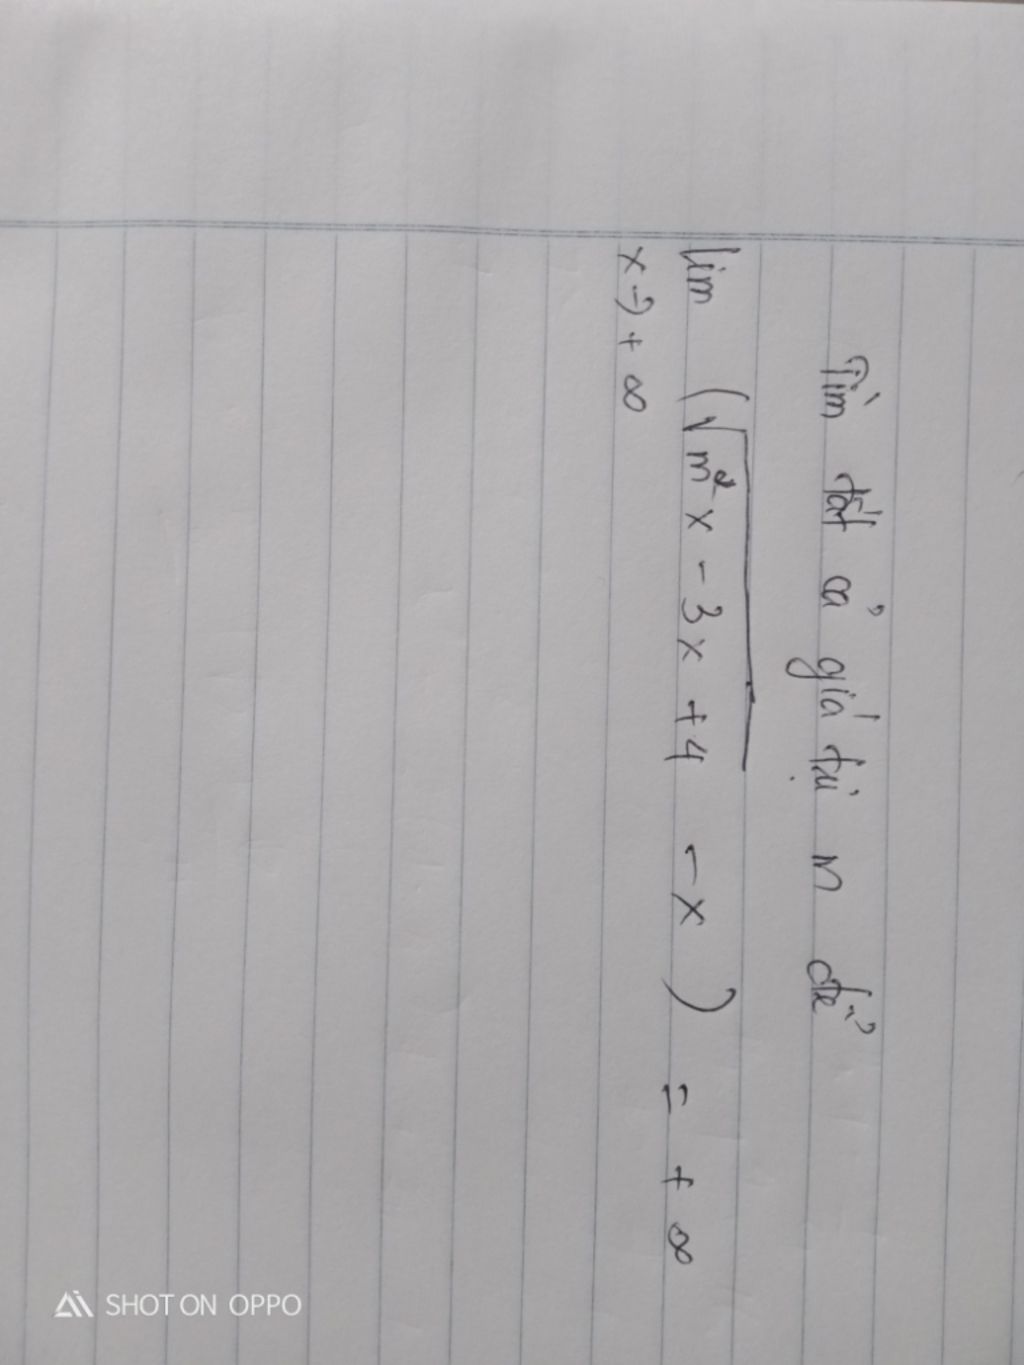 Tìm tất cả giá trị m để
lim (√m²x - 3x + 4 - x) = + ∞
x → + ∞
SHOT ON OPPO